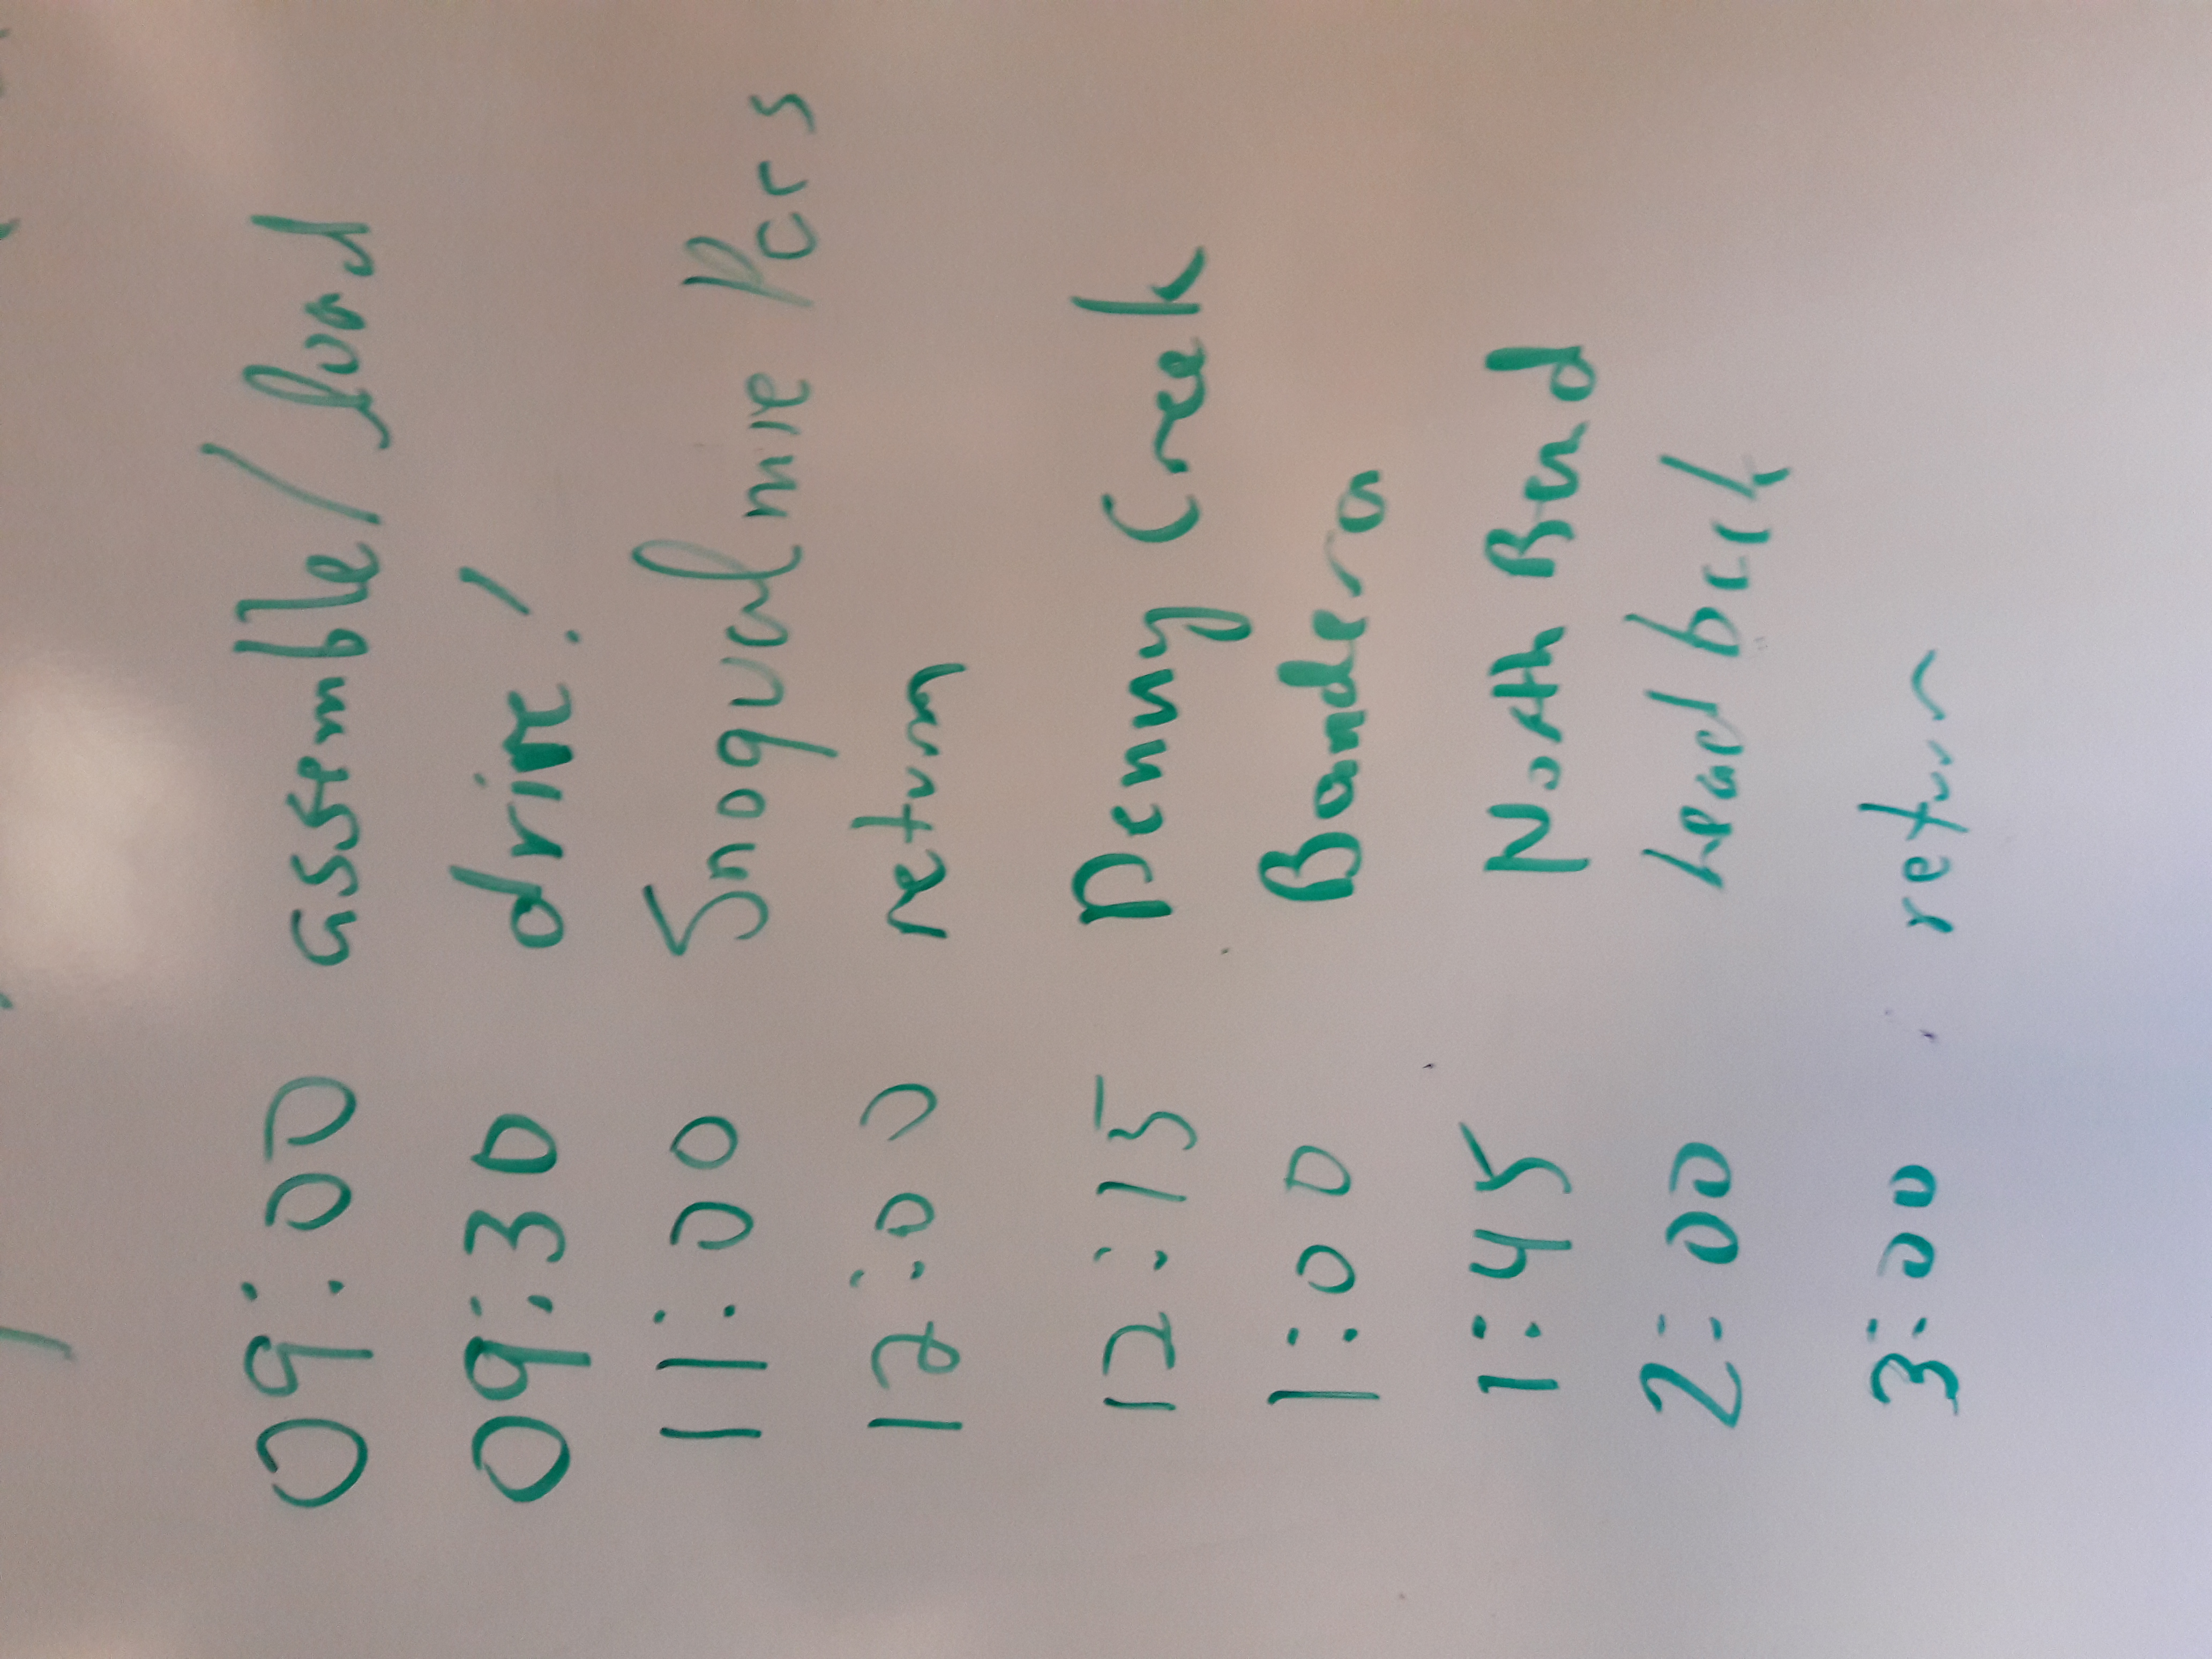 09:00 assemble/load
09:30 drive!
11:00 Snoqualmie Pcrs
12:00 return
12:15 Denny Creek
1:00 Bandera
1:45 North Bend
2:00 head back
3:00 return